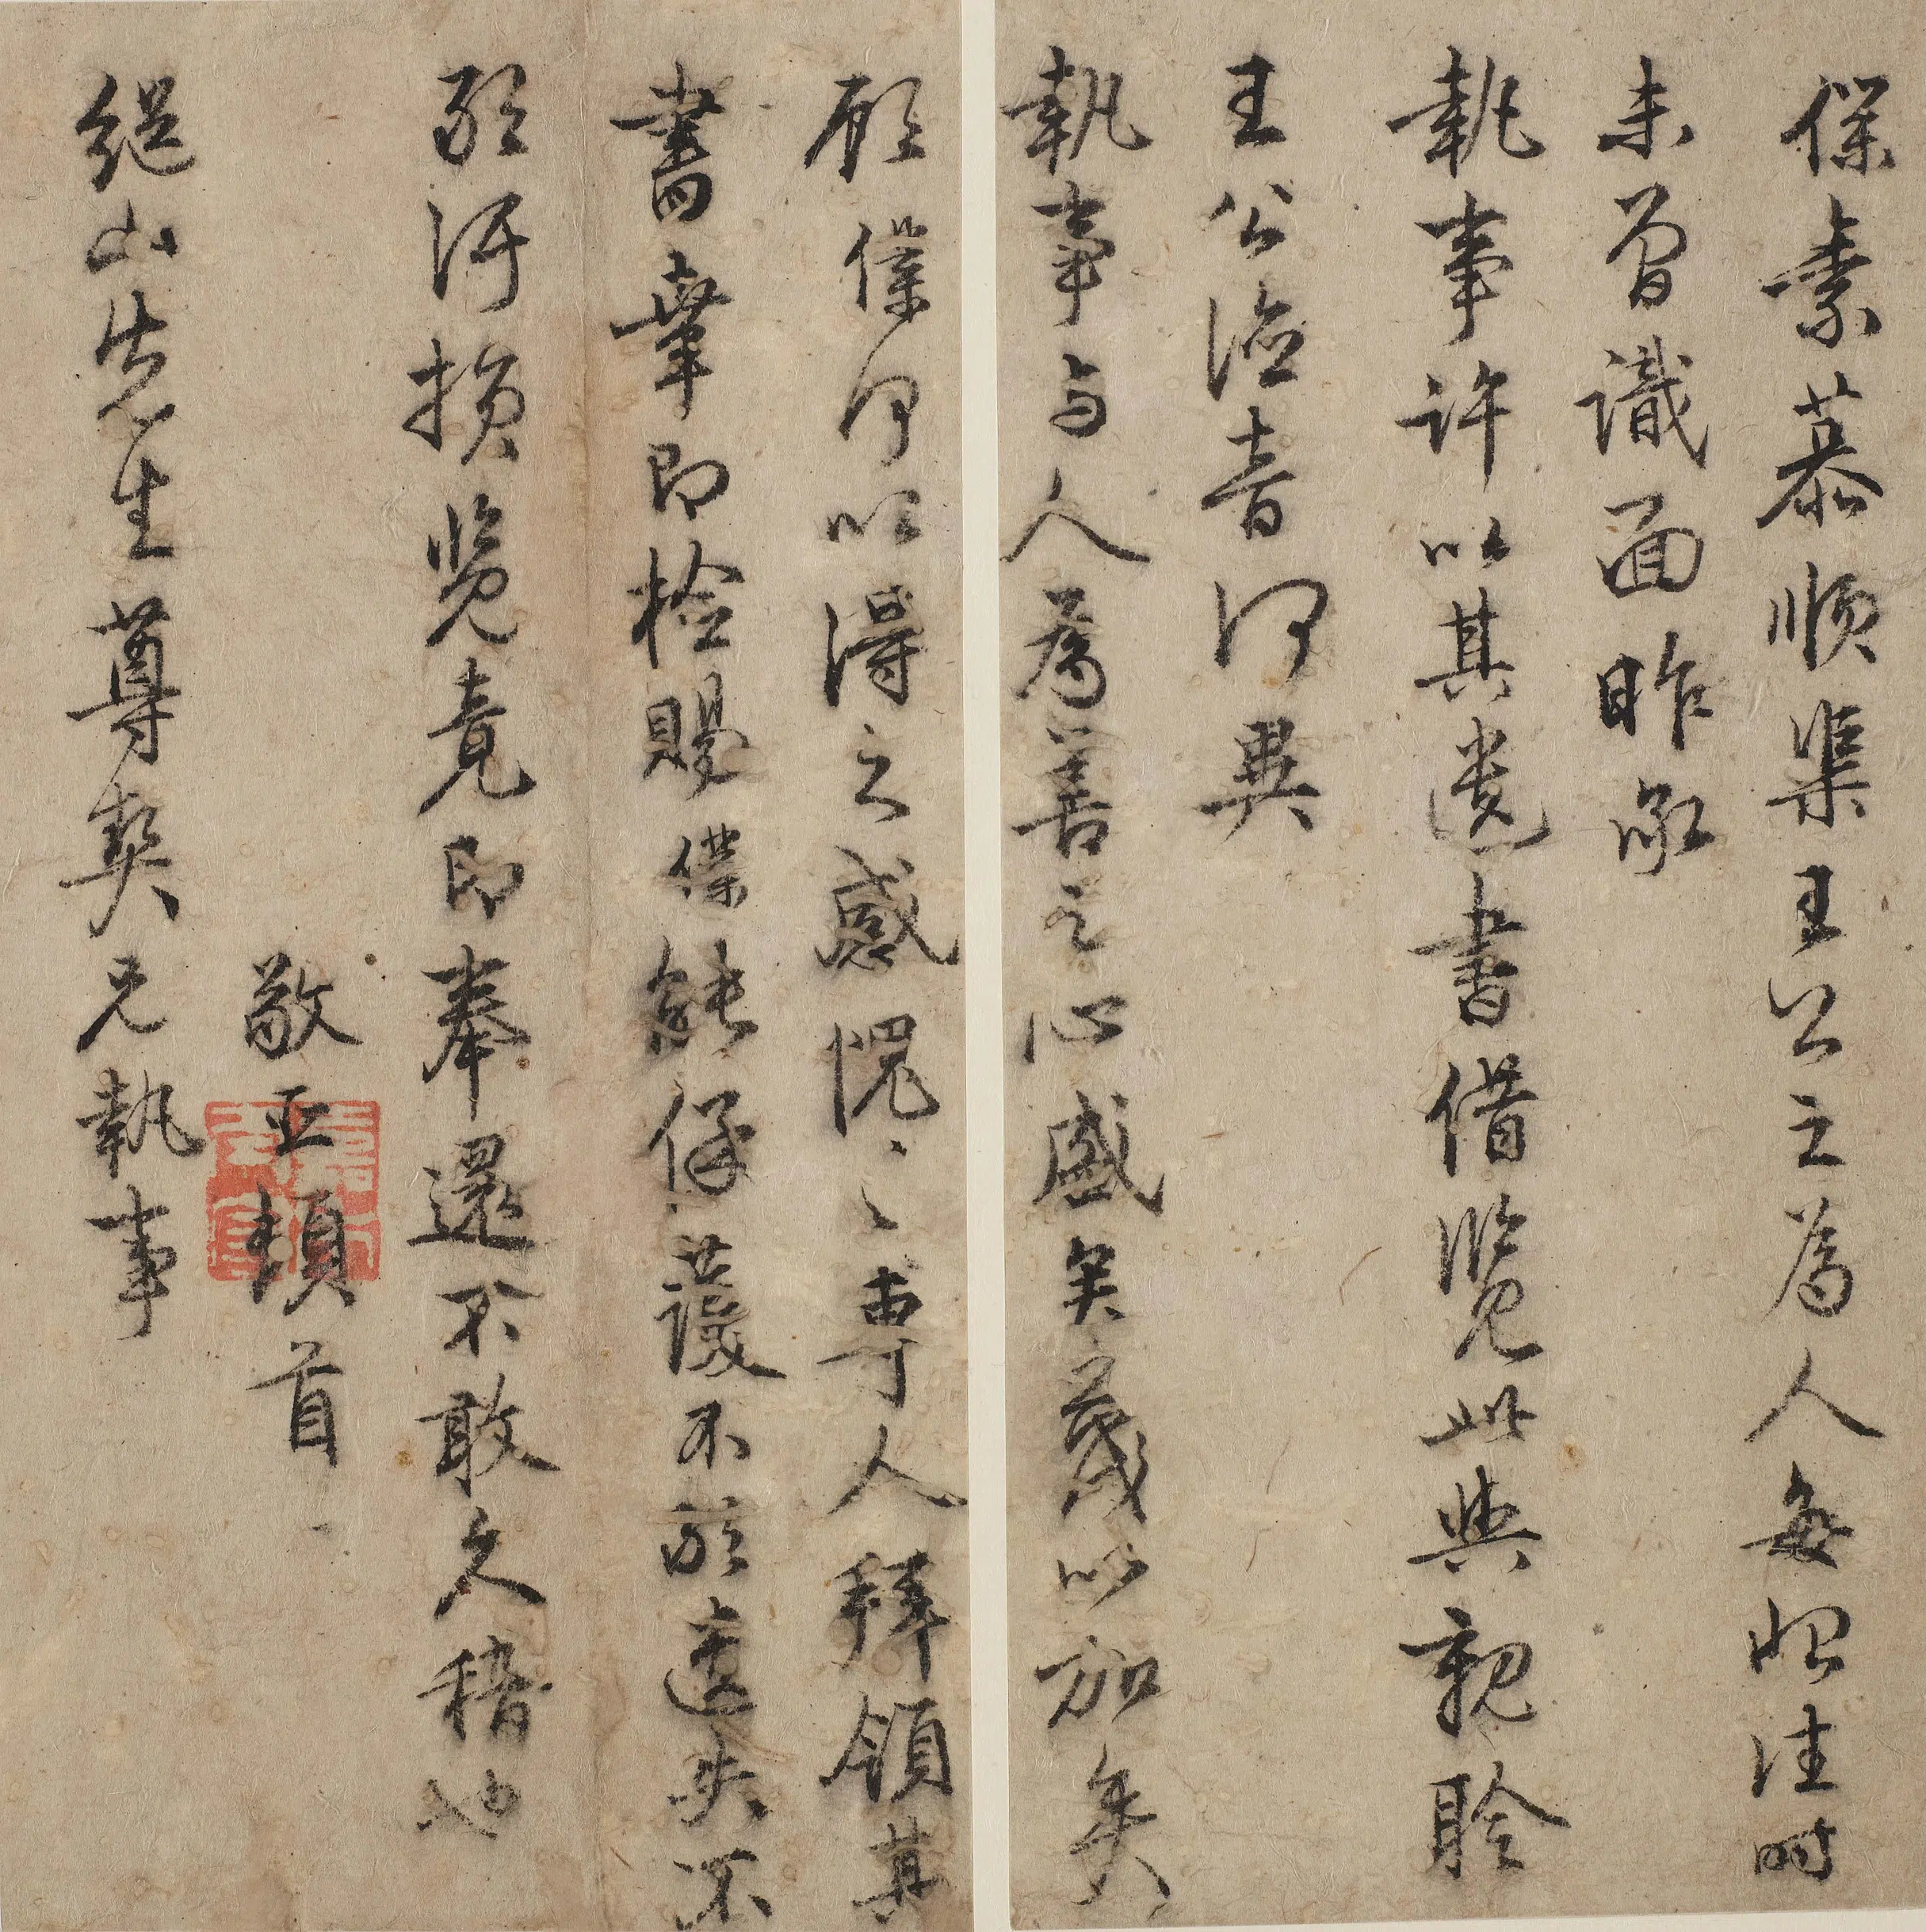 僕素慕順渠王公之為人每恨往時
未曾識面昨承
執事許以其遺書借覽此與親聆
王公謦音何異
執事与人為善之心盛矣蔑以加矣
顧僕何以得之感愧々々專人拜領其
書幸即檢賜僕能保護不致遺失不
致污損覽竟即奉還不敢久稽也
敬亚頓首
緄山先生尊契兄執事